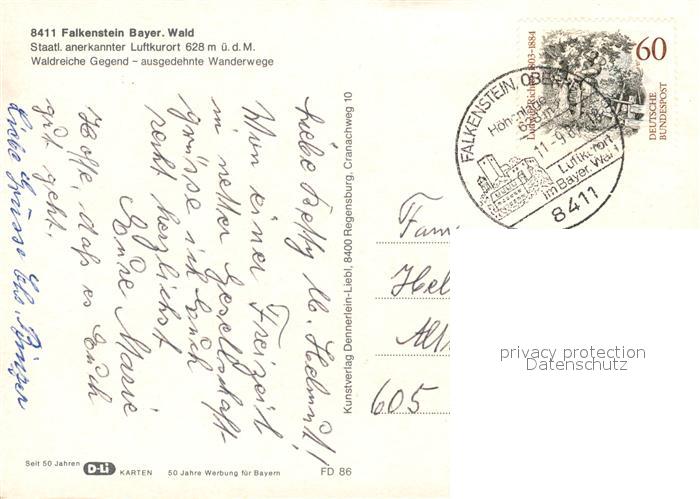 8411 Falkenstein Bayer. Wald
Staatl. anerkannter Luftkurort 628 m ü. d. M.
Waldreiche Gegend – ausgedehnte Wanderwege
Liebe Betty lb. Helmut!
Von einer Freizeit
in netter Gesellschaft
grüsse ich Euch
recht herzlichst
Eure Marie
Hoffe, daß es Euch
gut geht.
Liebe Grüsse
Kunstverlag Dennerlein-Liebl, 8400 Regensburg, Cranachweg 10
Ludwig Richter 1803-1884
60
DEUTSCHE
BUNDESPOST
FALKENSTEIN, OBE
Höhenlage
Luftkurort
im Bayer. Wald
8411
Fam
Hel
605
privacy protection
Datenschutz
Seit 50 Jahren D-Li KARTEN 50 Jahre Werbung für Bayern FD 86